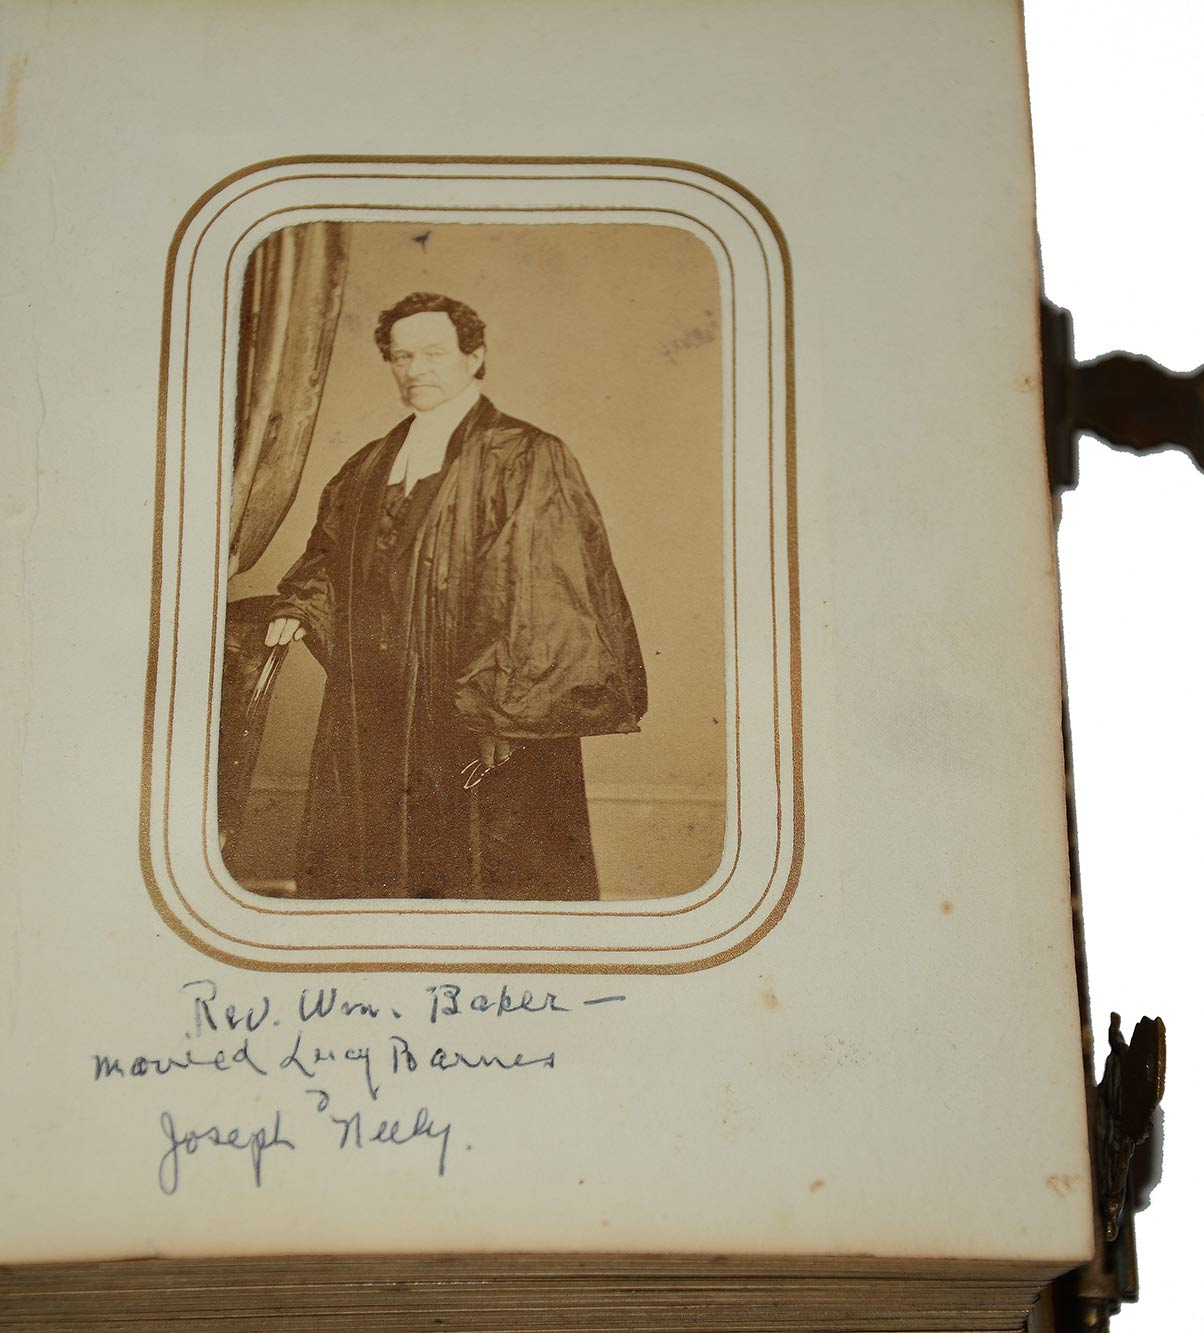 Rev. Wm. Baker —
married Lucy Barnes
&
Joseph Neely.